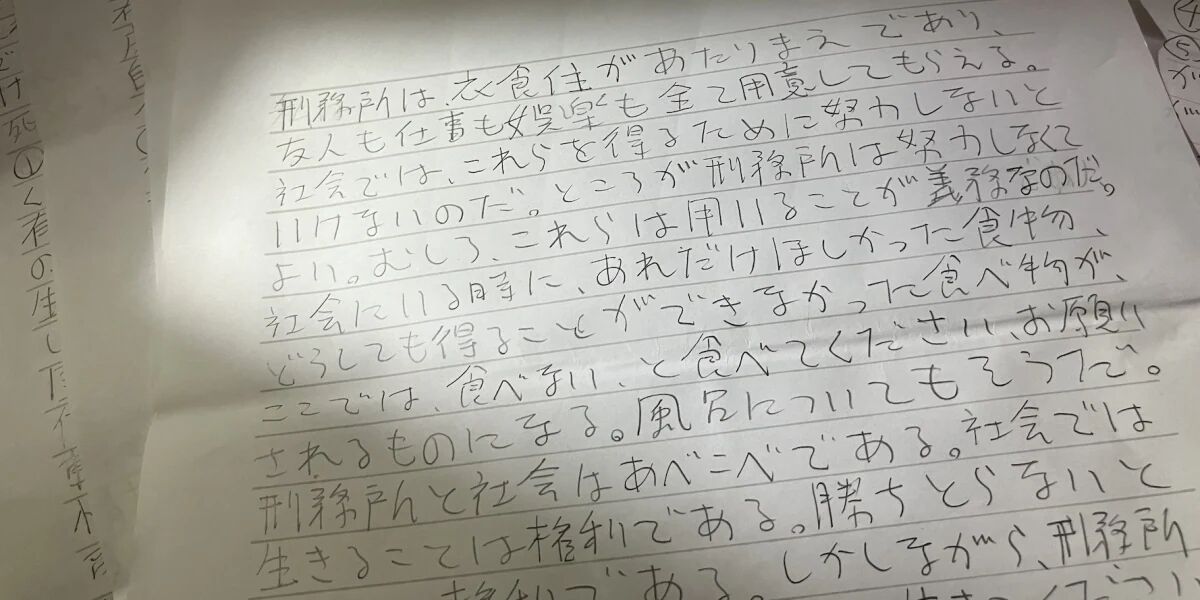 刑務所は、衣食住があたりまえであり、
友人も仕事も娯楽も全て用意してもらえる。
社会では、これらを得るために努力しないと
いけないのだ。ところが刑務所は努力しなくて
よい。むしろ、これらは用いることが義務なのだ。
社会にいる時に、あれだけほしかった食物、
どうしても得ることができなかった食べ物が、
ここでは、食べない、と食べてください、お願い
されるものになる。風呂についてもそうだ。
刑務所んと社会はあべこべである。社会では
生きることは権利である。勝ちとらないと
権利である。しかしながら、刑務所
④
⑤